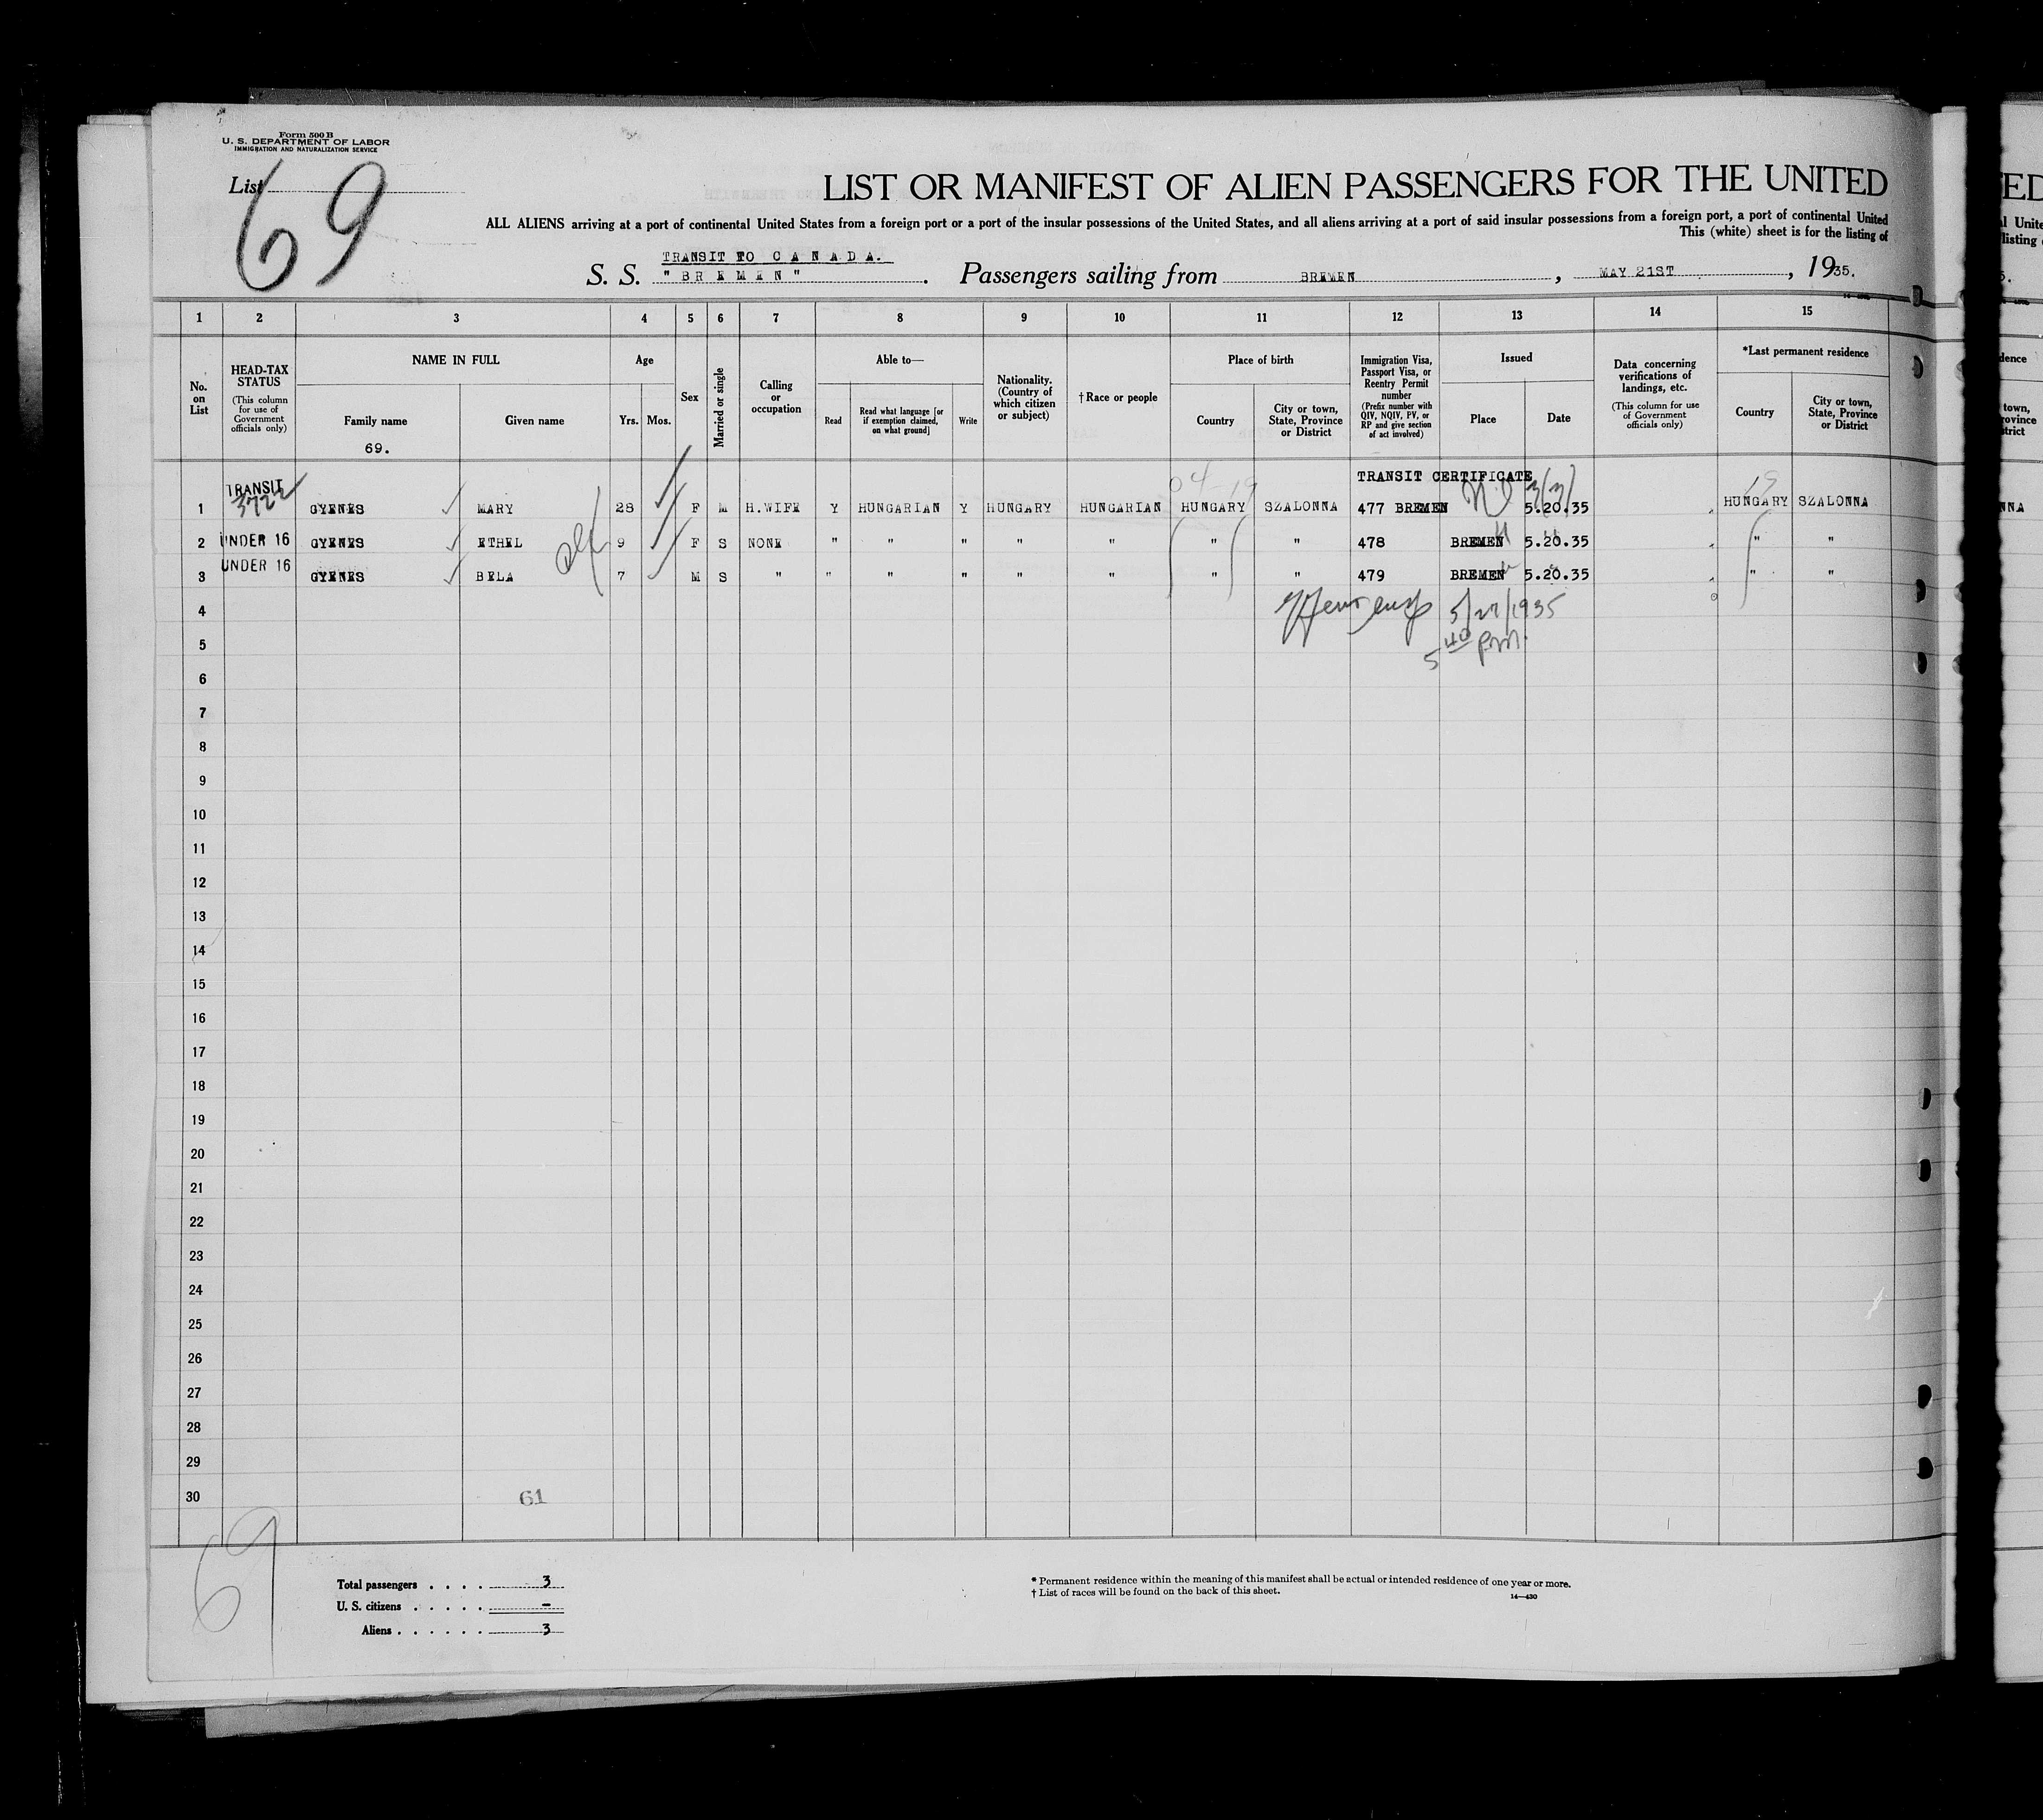 Form 500 B
U. S. DEPARTMENT OF LABOR
IMMIGRATION AND NATURALIZATION SERVICE
List 69
LIST OR MANIFEST OF ALIEN PASSENGERS FOR THE UNITED
ALL ALIENS arriving at a port of continental United States from a foreign port or a port of the insular possessions of the United States, and all aliens arriving at a port of said insular possessions from a foreign port, a port of continental United
This (white) sheet is for the listing of
TRANSIT TO CANADA.
S. S. "BREMEN". Passengers sailing from BREMEN, MAY 21ST, 1935.
1 2 3 4 5 6 7 8 9 10 11 12 13 14 15
No. on List
HEAD-TAX STATUS (This column for use of Government officials only)
NAME IN FULL
Family name
69.
Given name
Age
Yrs. Mos.
Sex
Married or single
Calling or occupation
Able to—
Read
Read what language [or if exemption claimed, on what ground]
Write
Nationality. (Country of which citizen or subject)
† Race or people
Place of birth
Country
City or town, State, Province or District
Immigration Visa, Passport Visa, or Reentry Permit number (Prefix number with QIV, NQIV, PV, or RP and give section of act involved)
Issued
Place
Date
Data concerning verifications of landings, etc. (This column for use of Government officials only)
*Last permanent residence
Country
City or town, State, Province or District
TRANSIT CERTIFICATE
04-19
1 TRANSIT 3722 GYENES MARY 28 F M H.WIFE Y HUNGARIAN Y HUNGARY HUNGARIAN HUNGARY SZALONNA 477 BREMEN 5.20.35 HUNGARY SZALONNA
2 UNDER 16 GYENES ETHEL 9 F S NONE " " " " " " " 478 BREMEN 5.20.35 " "
3 UNDER 16 GYENES BELA 7 M S " " " " " " " " 479 BREMEN 5.20.35 " "
4 5/27/1935
5 5 40 pm.
6
7
8
9
10
11
12
13
14
15
16
17
18
19
20
21
22
23
24
25
26
27
28
29
30
61
69
Total passengers . . . . 3
U. S. citizens . . . . . –
Aliens . . . . . . 3
* Permanent residence within the meaning of this manifest shall be actual or intended residence of one year or more.
† List of races will be found on the back of this sheet.
14—430